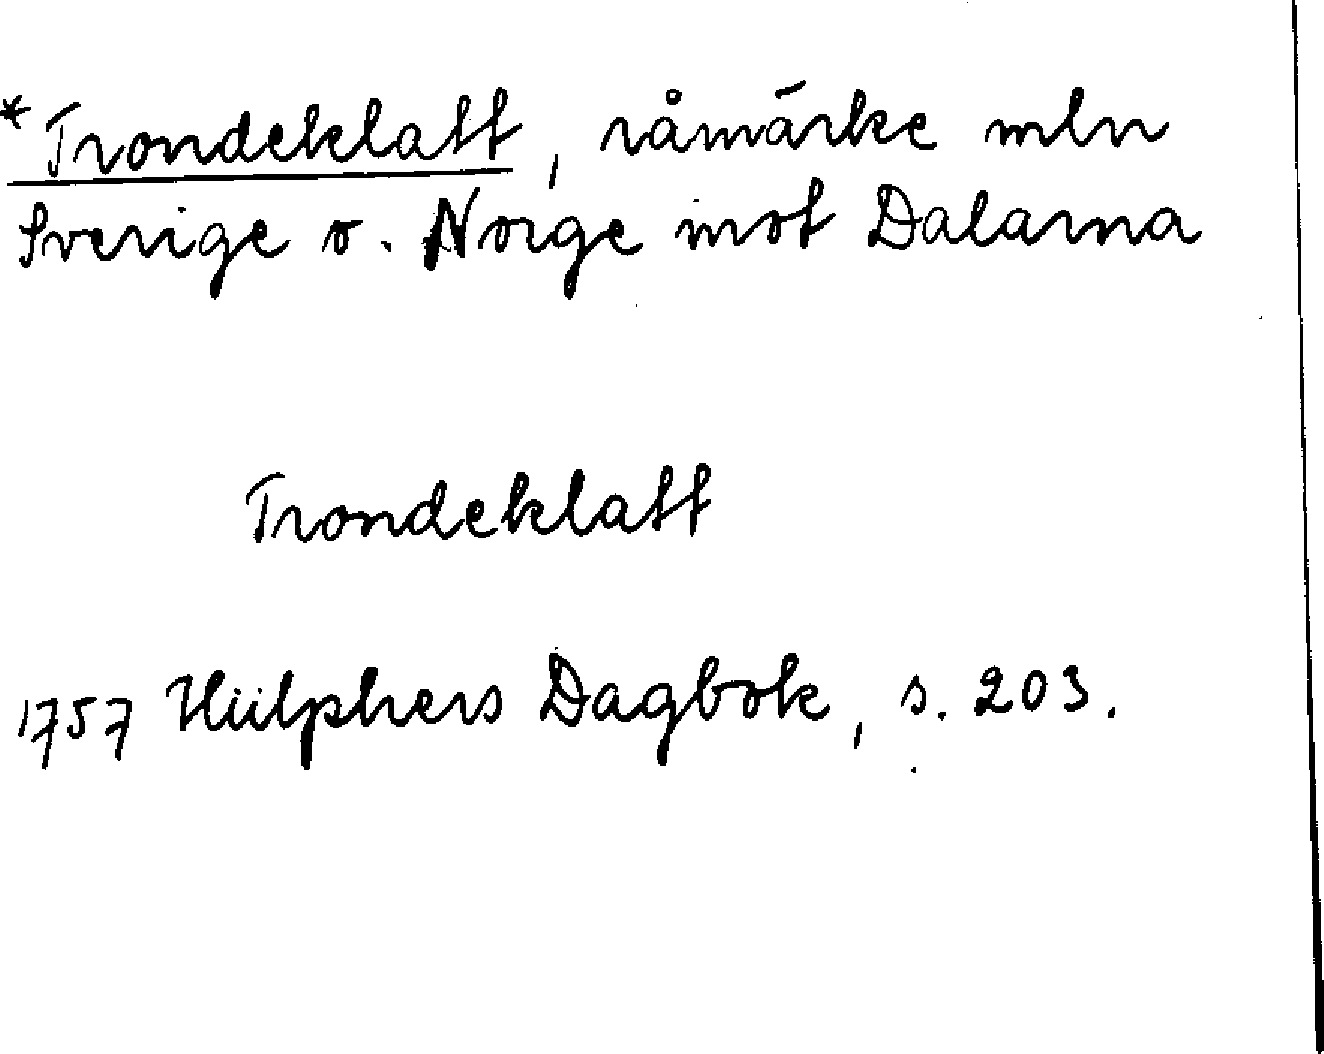 *Trondeklatt, råmärke mln
Sverige o. Norge mot Dalarna
Trondeklatt
1757 Hülphers Dagbok, s. 203.